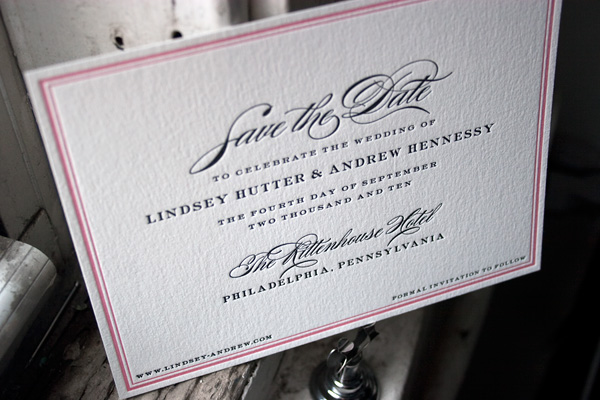 Save the Date
TO CELEBRATE THE WEDDING OF
LINDSEY HUTTER & ANDREW HENNESSY
THE FOURTH DAY OF SEPTEMBER
TWO THOUSAND AND TEN
The Rittenhouse Hotel
PHILADELPHIA, PENNSYLVANIA
FORMAL INVITATION TO FOLLOW
WWW.LINDSEY-ANDREW.COM